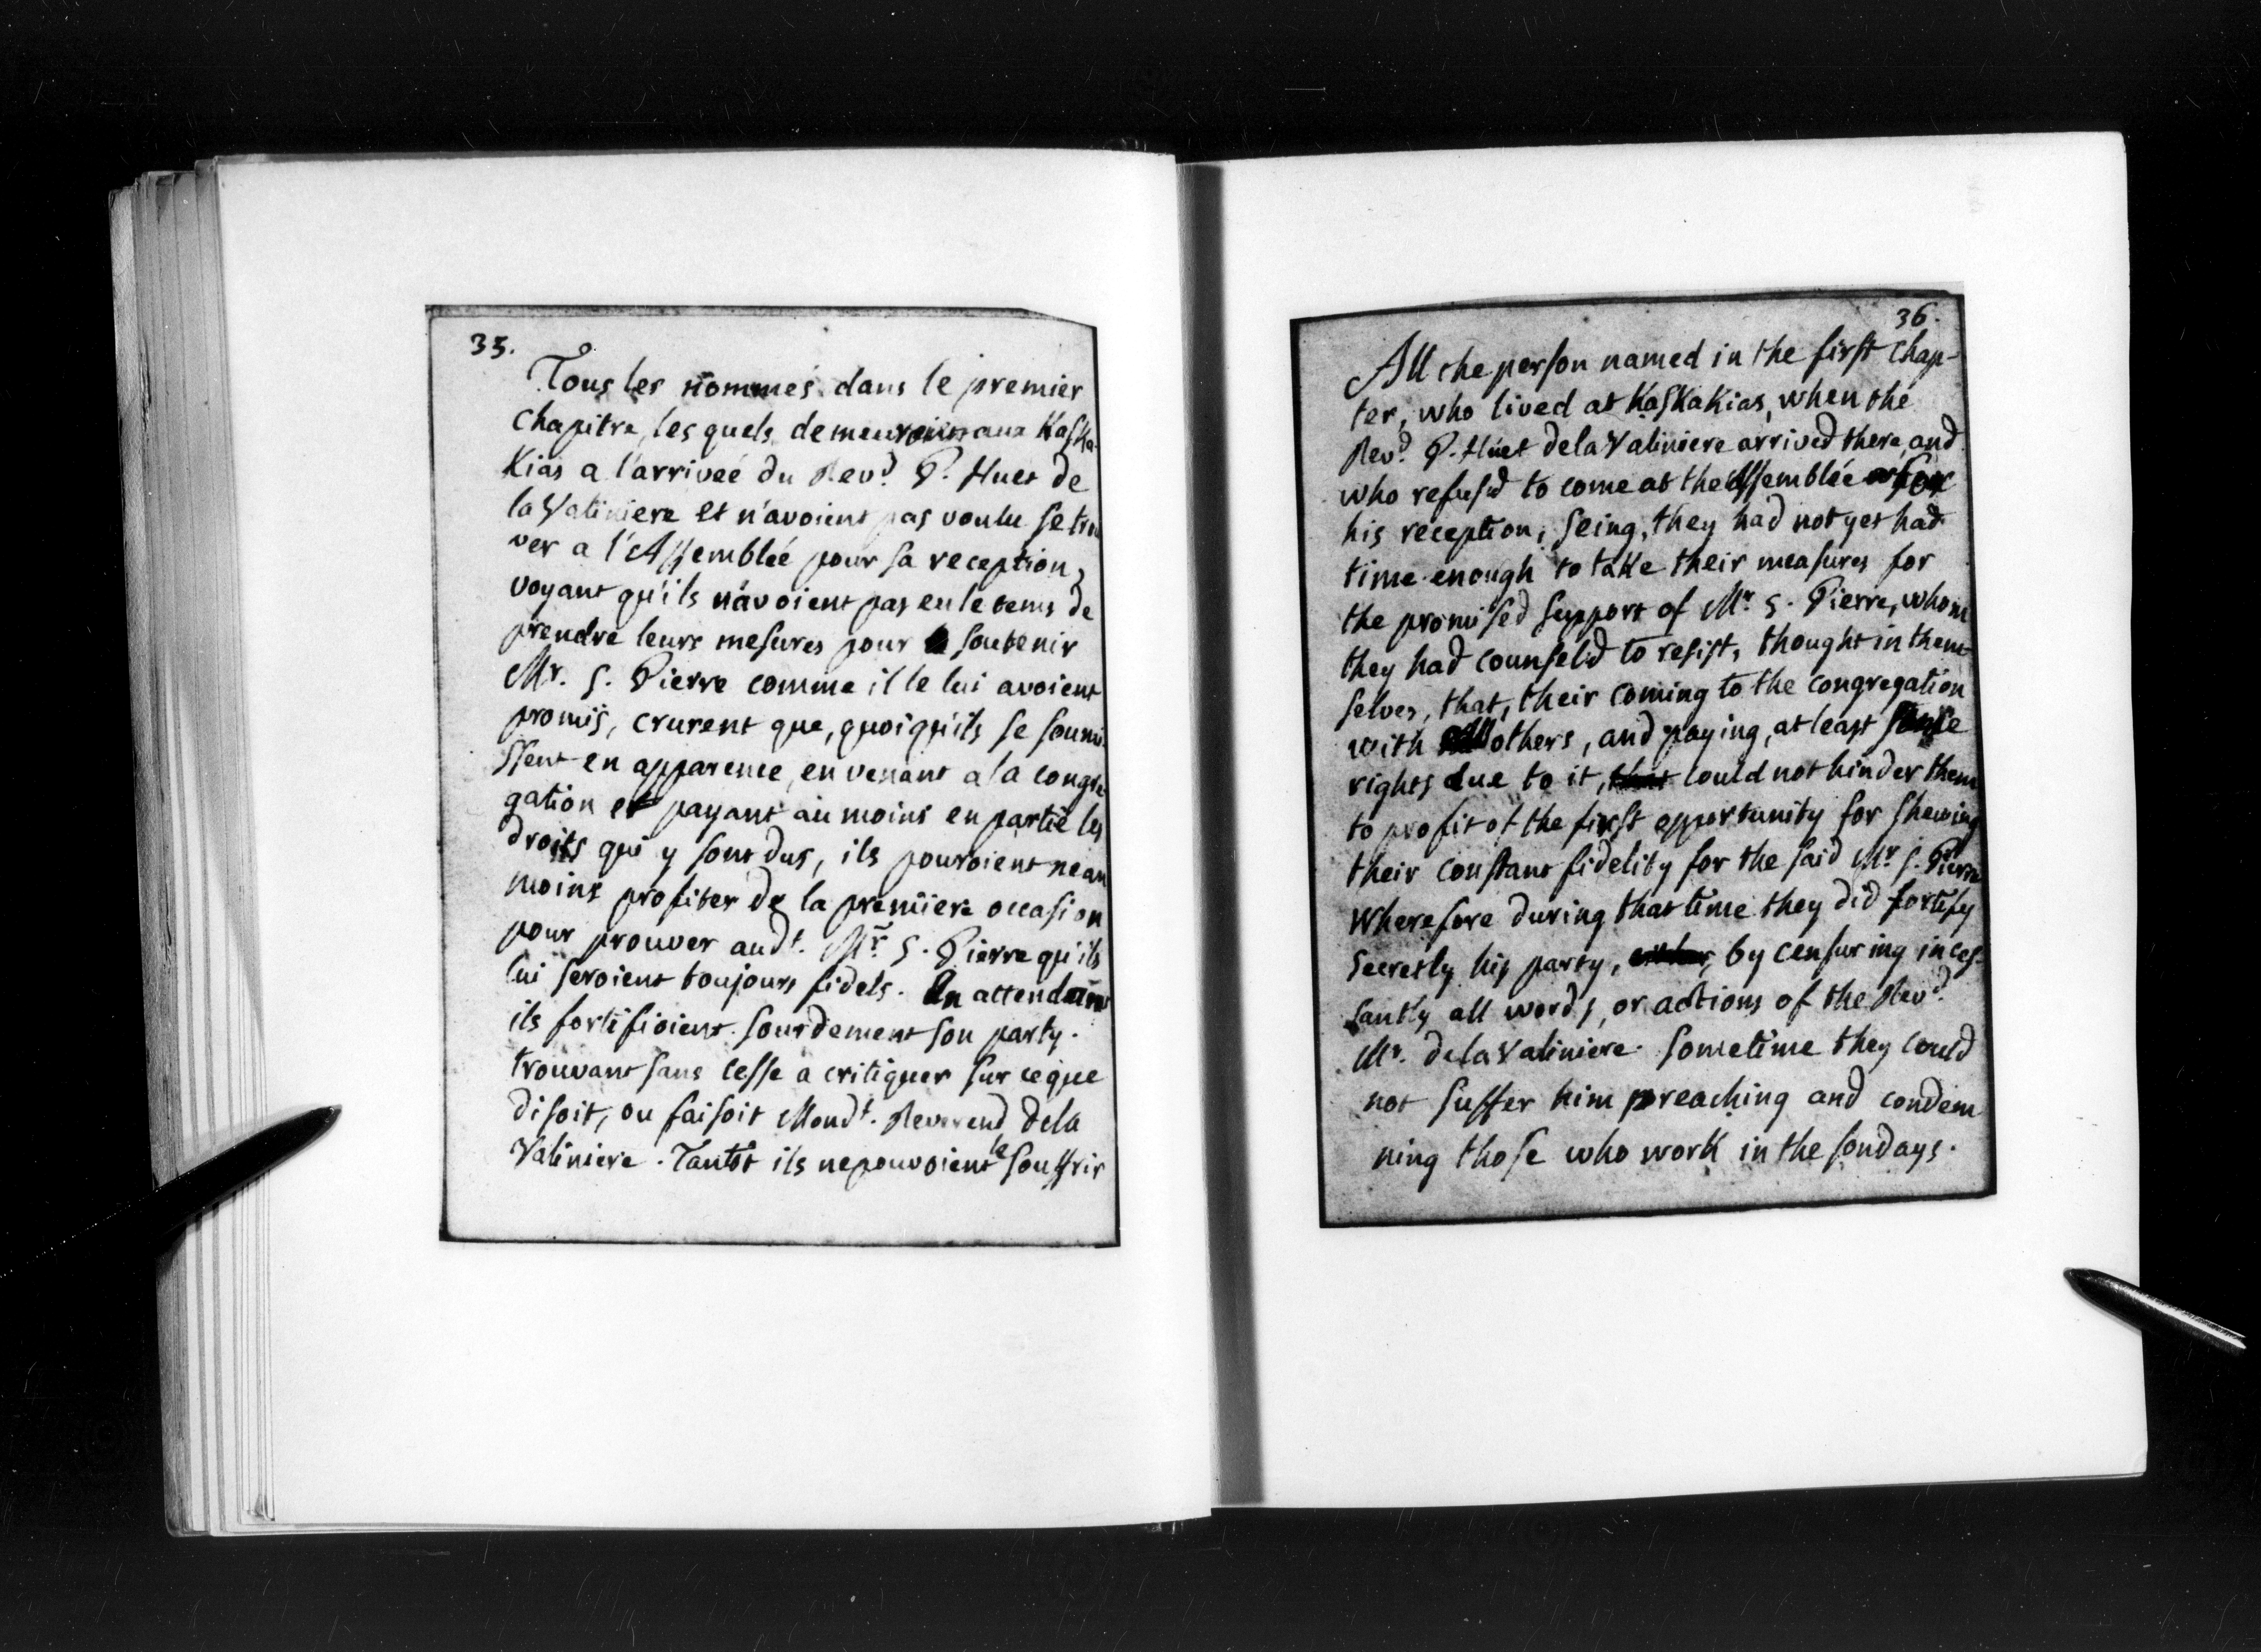 35.
Tous les nommés dans le premier
chapitre, les quels demeuroient aux Kaska-
Kias a l'arriveé du Rev.d P. Huet de
la Valiniere et n'avoient pas voulu se trou
ver a l'Assembleé pour sa reception,
voyant qu'ils n'avoient pas eu le tems de
prendre leurs mesures pour soutenir
Mr. S. Pierre comme il le lui avoient
promis, crurent que, quoiqu'ils se soumi-
ssent en apparence, en venant a la congre-
gation et payant au moins en partie les
droits qui y sont dus, ils pouroient nean
moins profiter de la premiere occasion
pour prouver aud.t Mr. S. Pierre qu'ils
lui seroient toujours fidels. En attendant
ils fortifioient sourdement son party.
trouvant sans cesse a critiquer sur ce que
disoit, ou faisoit Mond.t Reverend dela
Valiniere. Tantôt ils ne pouvoient le souffrir
36.
All the person named in the first chap-
ter, who lived at KasKaKias, when the
Rev.d P. Huet dela Valiniere arrived there, and
who refus'd to come at the Assemblée for
his reception; seing, they had not yet had
time enough to take their measures for
the promised support of Mr. S. Pierre, whom
they had counsel'd to resist, thought in them-
selves, that, their coming to the congregation
with others, and paying, at least some
rights due to it, that could not hinder them
to profit of the first opportunity for shewing
their constant fidelity for the said Mr. S. Pierre
wherefore during that time they did fortify
secretly his party, by censuring inces-
santly all words, or actions of the Rev.d
Mr. dela Valiniere. sometime they could
not suffer him preaching and condem
ning those who work in the sondays.